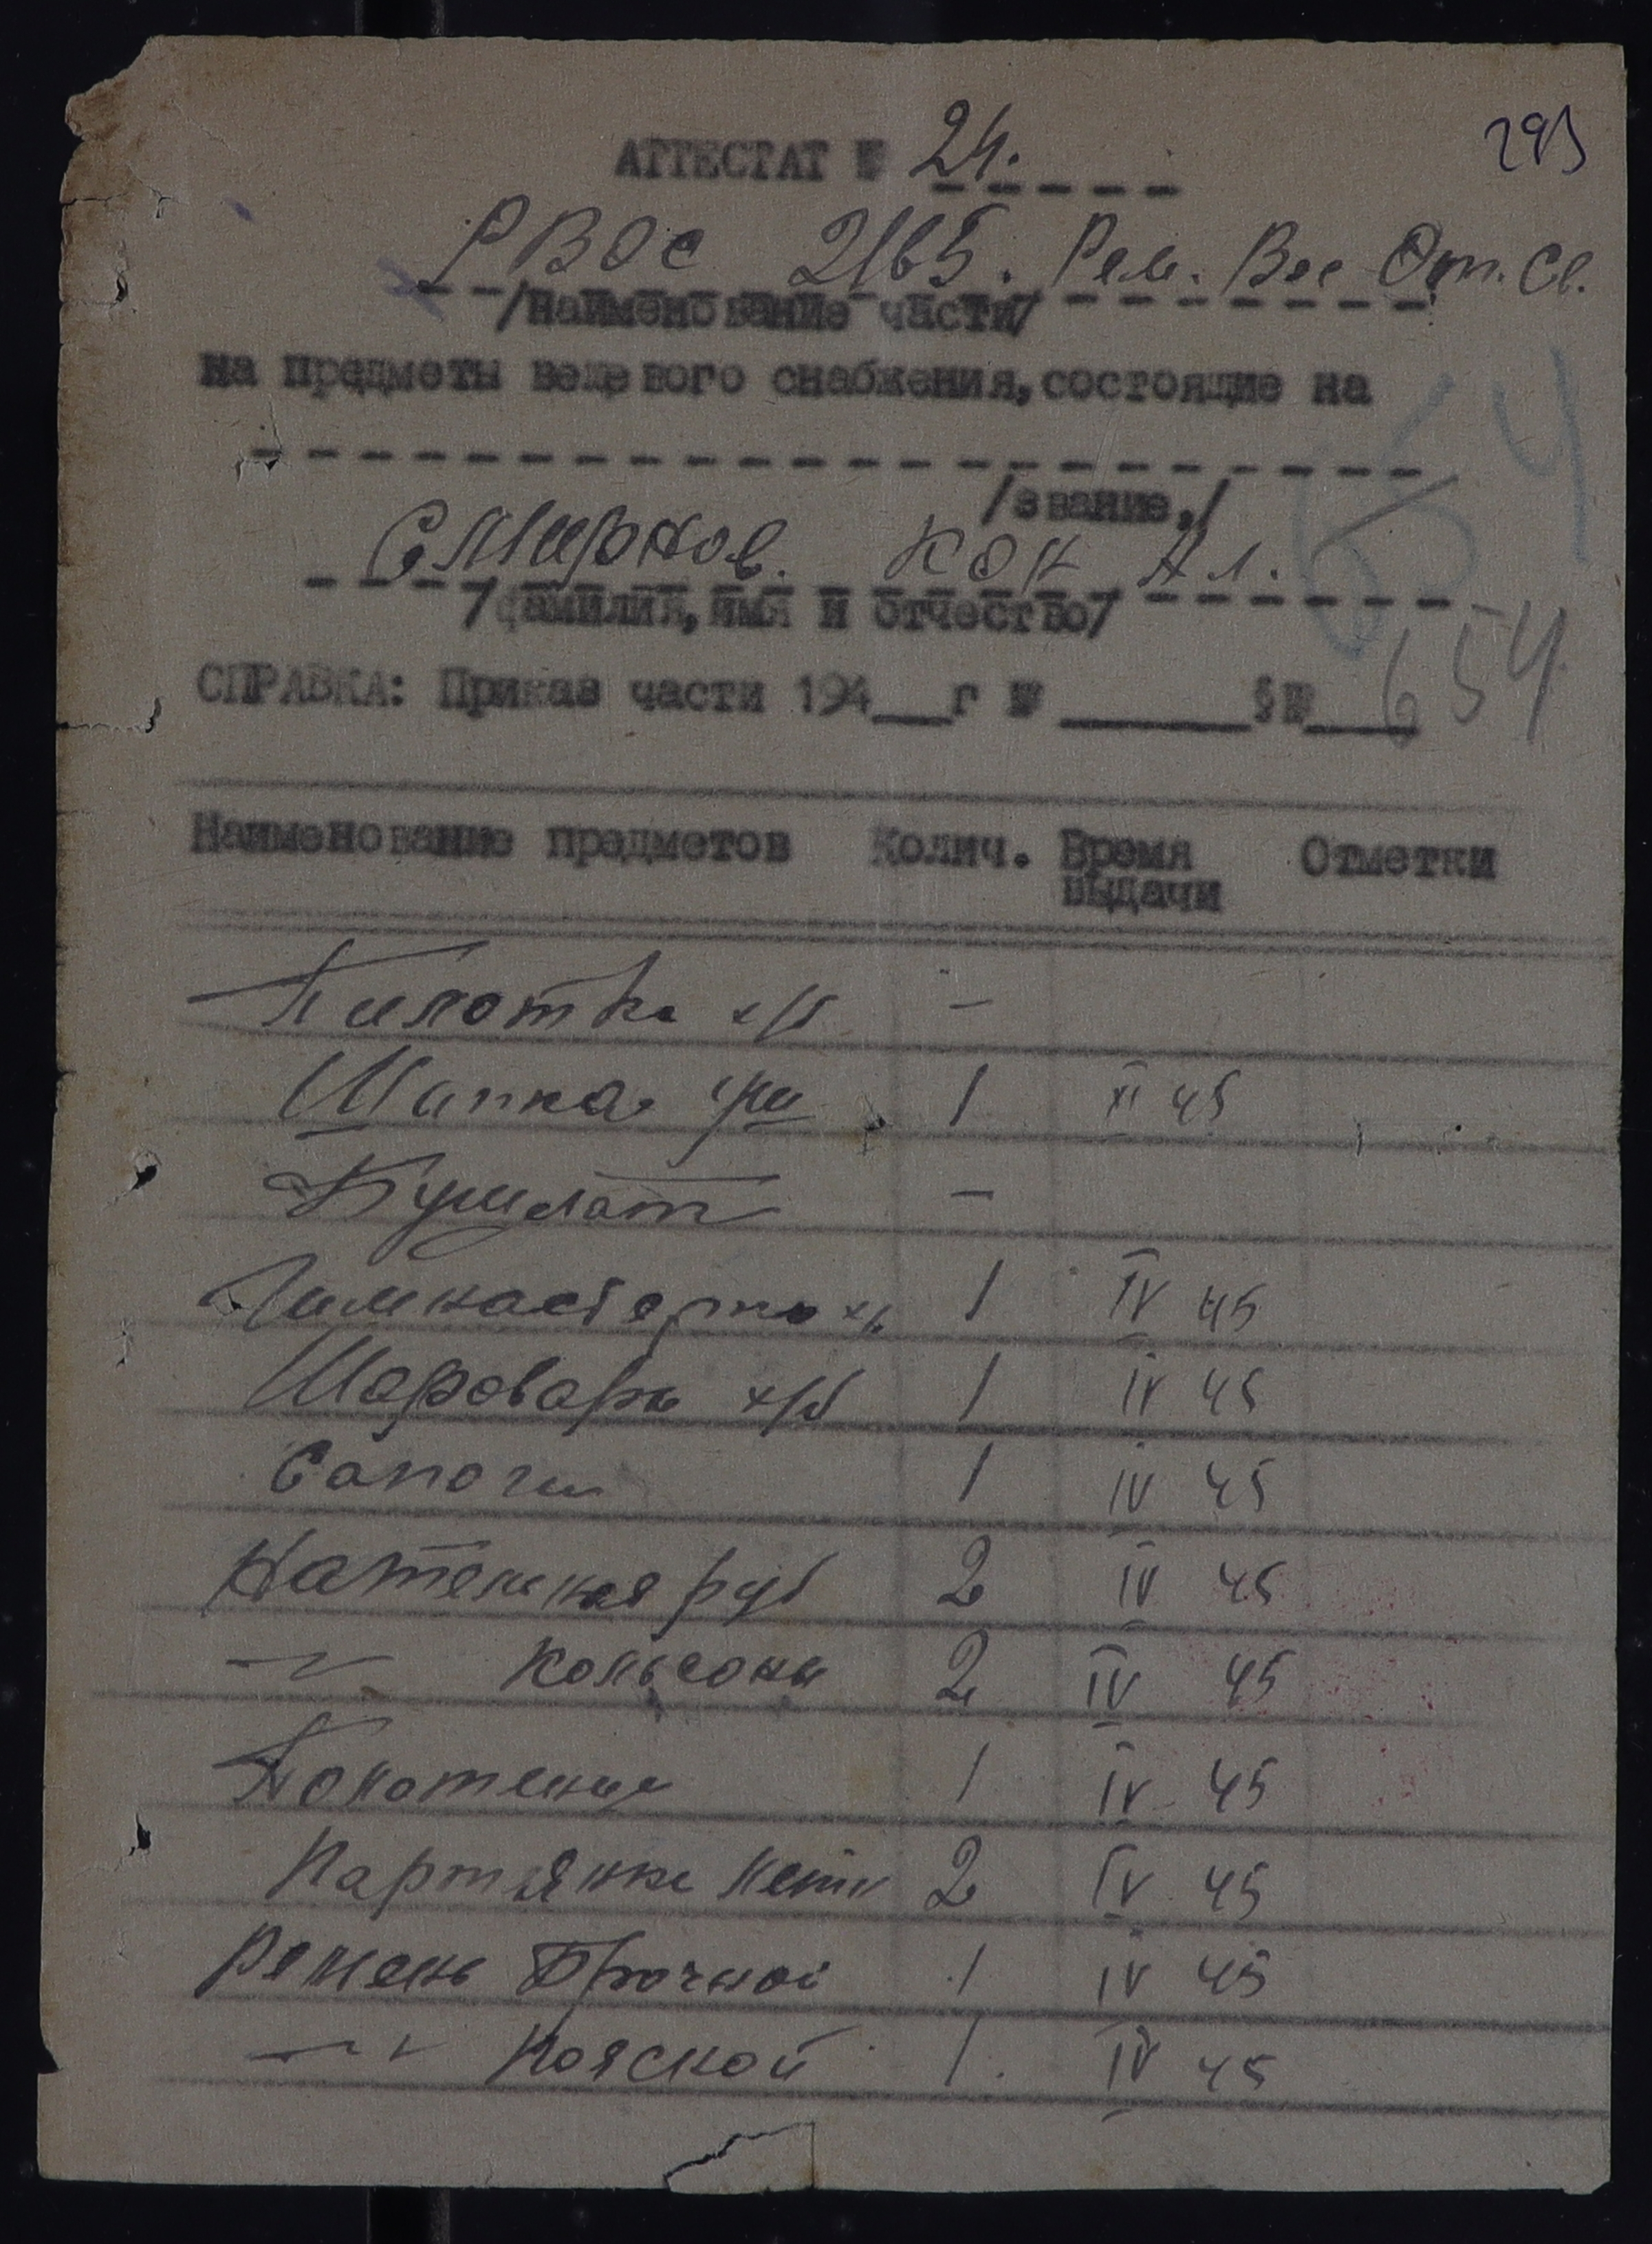 293
АТТЕСТАТ № 24.
РВОС 2165. Рем. Вос От. Св.
/наименование части/
на предметы вещевого снабжения, состоящие на
/звание,/
54
6
Смирнов. Кон Ал.
/фамилия, имя и отчество/
СПРАВКА: Приказ части 194___г № ______ §№___ 654
Наименование предметов Колич. Время выдачи Отметки
Пилотка х/б –
Шапка 1 XI 45
Бушлат –
Гимнастерка х/б 1 IV 45
Шаровары х/б 1 IV 45
Сапоги 1 IV 45
Нательная руб 2 IV 45
–"– Кольсоны 2 IV 45
Полотенце 1 IV 45
Партянки летн 2 IV 45
Ремень Брючной 1 IV 45
–"– Поясной 1. IV 45